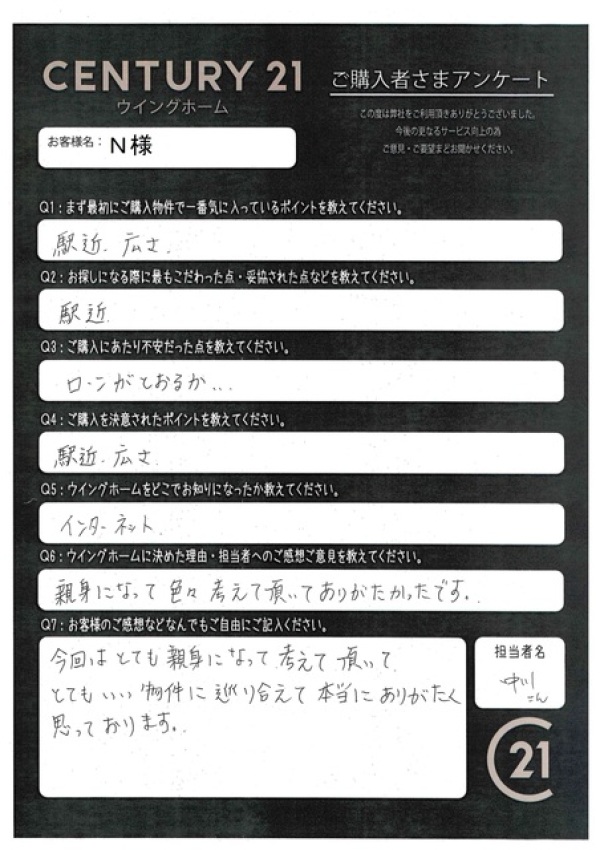 CENTURY 21
ウイングホーム
ご購入者さまアンケート
この度は弊社をご利用頂きありがとうございました。
今後の更なるサービス向上の為
ご意見・ご要望までお聞かせください。
お客様名: N様
Q1:まず最初にご購入物件で一番気に入っているポイントを教えてください。
駅近.広さ.
Q2:お探しになる際に最もこだわった点・妥協された点などを教えてください。
駅近
Q3:ご購入にあたり不安だった点を教えてください。
ローンがとおるか...
Q4:ご購入を決意されたポイントを教えてください。
駅近.広さ
Q5:ウイングホームをどこでお知りになったか教えてください。
インターネット.
Q6:ウイングホームに決めた理由・担当者へのご感想ご意見を教えてください。
親身になって色々考えて頂いてありがたかったです..
Q7:お客様のご感想などなんでもご自由にご記入ください。
今回はとても親身になって考えて頂いて
とてもいい物件に巡り合えて本当にありがたく
思っております..
担当者名
中川
さん
C21